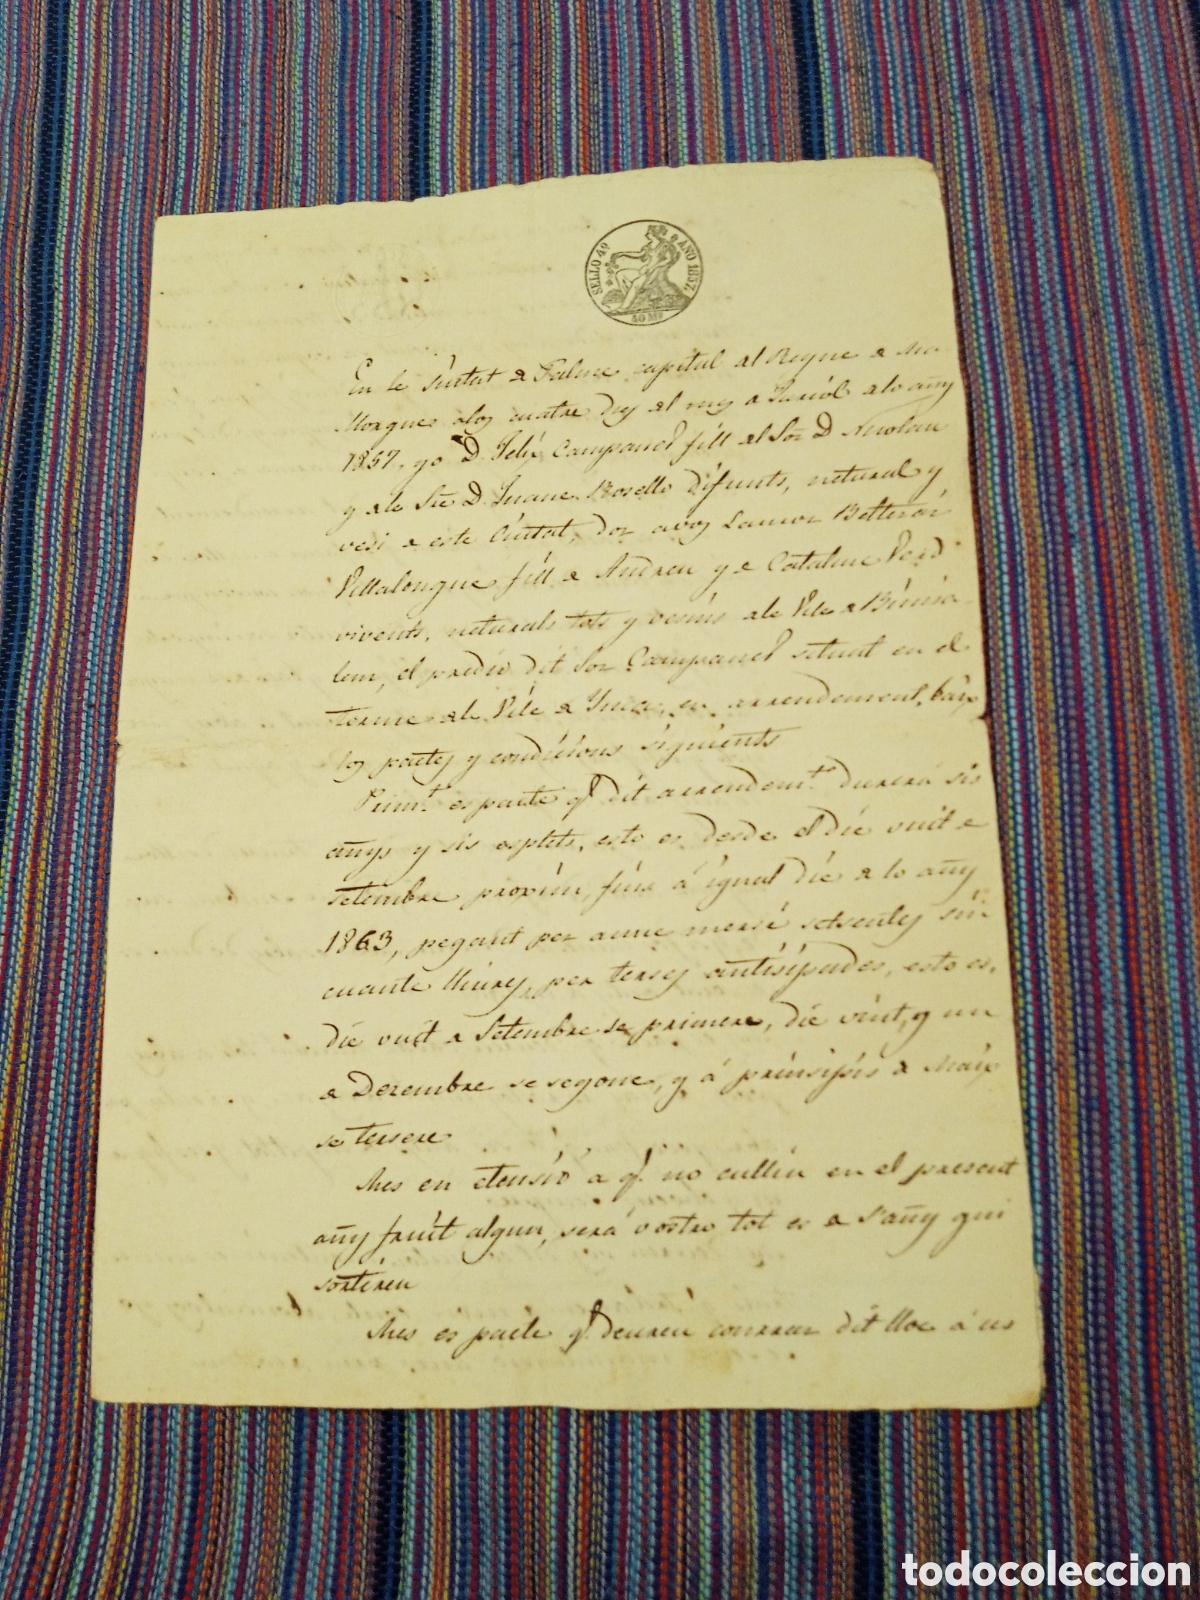 SELLO 4º AÑO 1857.
40 Ms
En le Siutat a Palme capital al Regne a Ma
llorques alos cuatre dey al mes a Juriól alo añy
1857, yo D. Felip Campanel fill al Sor D. Nicolau
y ale Sra D. Juane Rosello difunts, natural y
vesi a este Ciutat, don a voz Llauor Beltran
Villalongue fill a Andreu y a Cataline Verd
vivents, naturals tots y vesins ale Vile a Binisa-
lem, el predio dit Son Campanel situat en el
terme ale Vile a Ynca, en arrendement, baix
los pactes y condicions siguients
Primt es pacte qe dit arrendemto durerá sis
añys y sis esplets, esto es desde el die vuit a
setembre proxim, fins á igual die a lo añy
1863, pegant per anue mersé setsentes sin
cuante lliures, per terses antisipades, esto es,
die vuit a Setembre se primere, die vint, y un
a Decembre se segone, y á prinsipis a Maix
se tersere
Mes en atensió a qe no cullin en el present
añy fruit algun, será vostro tot es a s'añy qui
sortireu
Mes es pacte qe deureu conrrar dit lloc á us
todocoleccion